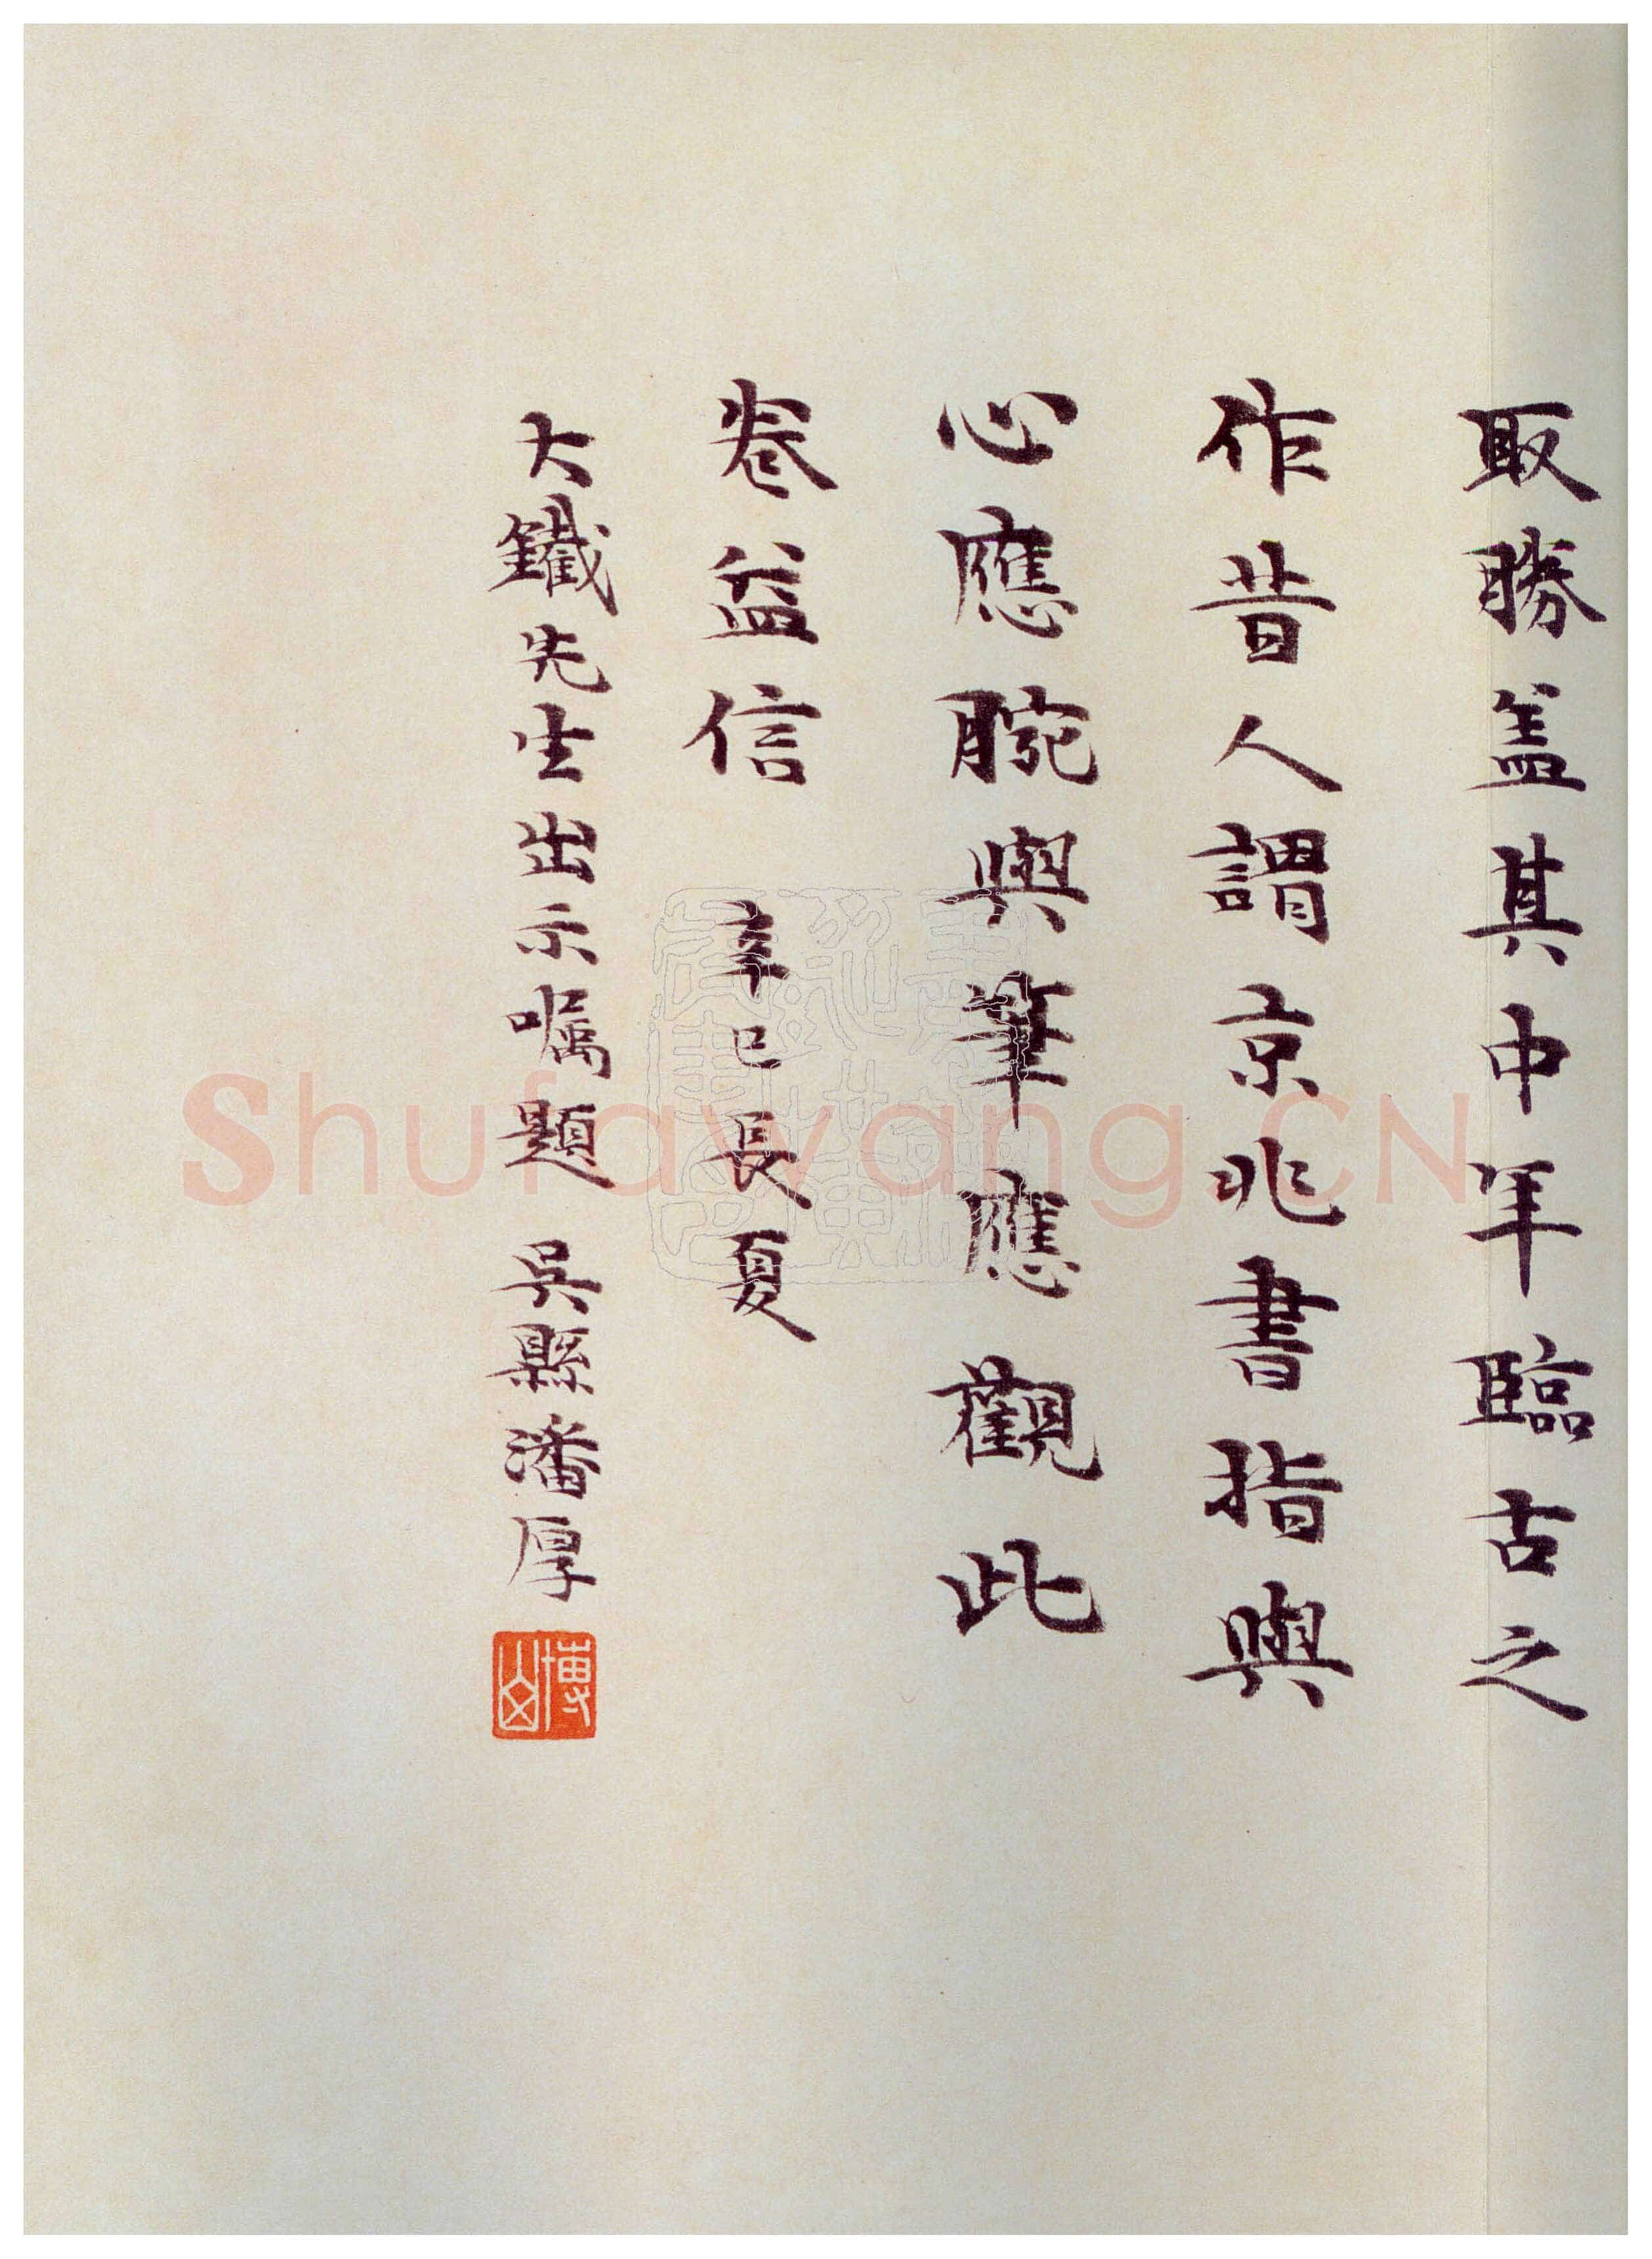 取勝蓋其中年臨古之
作昔人謂京兆書指與
心應腕與筆應觀此
卷益信 辛巳長夏
大鐵先生出示囑題 吳縣潘厚
博山
Shufawang.CN